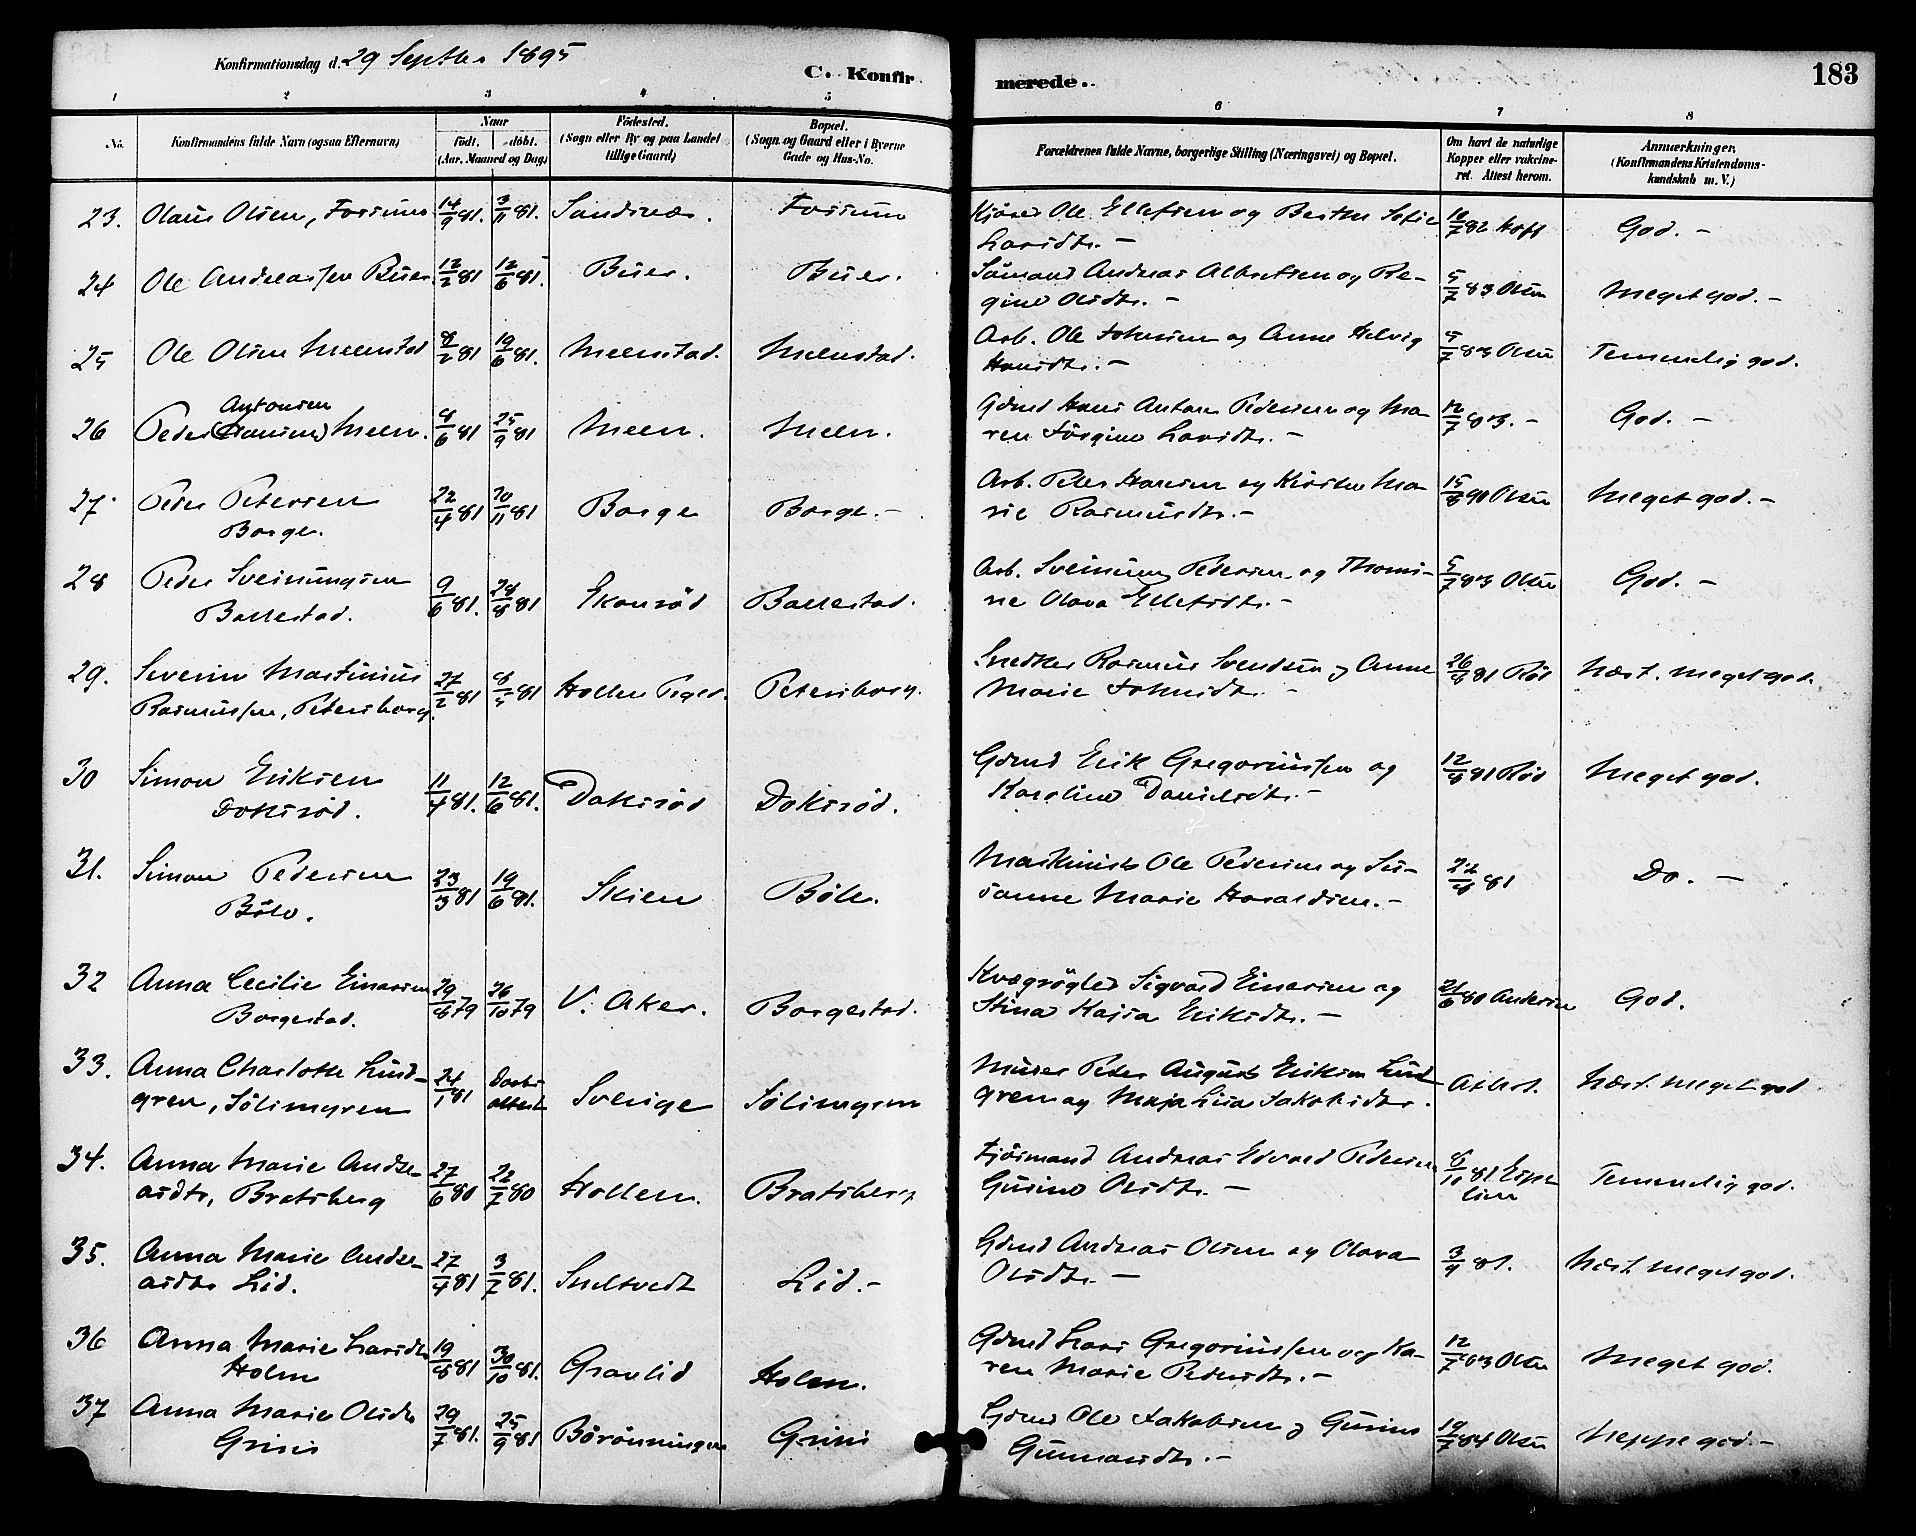 Konfirmationsdag d. 29 Septbr 1895
C. Konfirmerede.
183
1 2 3 4 5 6 7 8
No. Konfirmandens fulde Navn (ogsaa Efternavn) Naar født. døbt. (Aar, Maaned og Dag) Fødested. (Sogn eller By og paa Landet tillige Gaard) Bopæl. (Sogn og Gaard eller i Byerne Gade og Hus-No. Forældrenes fulde Navne, borgerlige Stilling (Næringsvei) og Bopæl. Om havt de naturlige Kopper eller vakcineret. Attest herom. Anmærkninger. (Konfirmandens Kristendomskundskab m. V.)
23. Olaus Olsen, Fossum 14/9 81. 3/11 81. Sandnæs. Fossum Kjører Ole Ellefsen og Berthe Sofie Larsdtr. – 10/7 82 Hoff God. –
24 Ole Andreassen Buer. 12/2 81 12/6 81. Buer. Buer. Sømand Andreas Albertsen og Regine Olsdtr. – 5/7 83 Olsen Meget god. –
25 Ole Olsen Meenstad 8/2 81 19/6 81. Meenstad. Meenstad. Arb. Ole Johnsen og Anne Helvig Hansdtr. – 5/7 83 Olsen Temmelig god.
26 Peder Antonsen (Hansen) Meen. 8/6 81 25/9 81 Meen. Meen. Gdmd Hans Anton Pedersen og Maren Jørgine Larsdtr. – 12/7 83. – God. –
27. Peder Petersen Borge. 22/4 81 20/11 81 Borge Borge. – Arb. Peter Hansen og Kirstine Marie Rasmusdtr. – 15/8 90 Olsen Meget god. –
28 Peder Sveinungsen Ballestad. 9/6 81. 28/8 81 Skaurød Ballestad. Arb. Sveinung Pedersen og Thomine Olava Ellefsdtr. – 5/7 83 Olsen God. –
29. Severin Martinius Rasmussen, Petersborg. 27/2 81 81 Hollen Prgd. Petersborg. Snedker Rasmus Svendsen og Anne Marie Johnsdtr. – 26/8 81 Röd Næst. meget god.
30 Simon Eriksen Doksrød. 11/4 81. 12/6 81. Doksrød Doksrød. Gdmd Erik Gregoriussen og Karoline Danielsdtr. – 12/8 81 Röd Meget god.
31. Simon Pedersen Böle. 23/3 81 19/6 81. Skien Böle. Maskinist Ole Pedersen og Susanne Marie Haraldsen. – 22/8 81 Do. –
32 Anna Cecilie Einarsen Borgestad. 29/8 79 26/10 79 V. Aker. Borgestad. Kvægrøgter Sigvard Einarsen og Stina Kajsa Eriksdtr. – 21/6 80 Andersen God.
33. Anna Charlotte Lindgren, Sölimyren 24/1 81 Daabsattest Sverige Sölimyren Murer Peter August Eriksen Lindgren og Maja Lisa Jakobsdtr. Attest. Næst. meget god
34. Anna Marie Andreasdtr, Bratsberg 27/6 80 22/7 80 Hollen. Bratsberg Fjösmand Andreas Edvard Pedersen Gusine Olsdtr. – 6/11 81 Temmelig god.
35. Anna Marie Andreasdtr Lid. 27/4 81 3/7 81. Smeltvedt Lid. – Gdmd Andreas Olsen og Olava Olsdtr. – 3/9 81. Næst. meget god.
36 Anna Marie Larsdtr Holm 19/8 81 30/10 81. Gravlid Holm. Gdmd Lars Gregoriussen og Karen Marie Pedersdtr. – 12/7 83 Olsen Meget god.
37 Anna Marie Olsdtr Grini 29/7 81. 25/9 81 Börönningen Grini Gdmd Ole Jakobsen og Gusine Gunnarsdtr. – 19/7 84 Olsen Neppe god. –